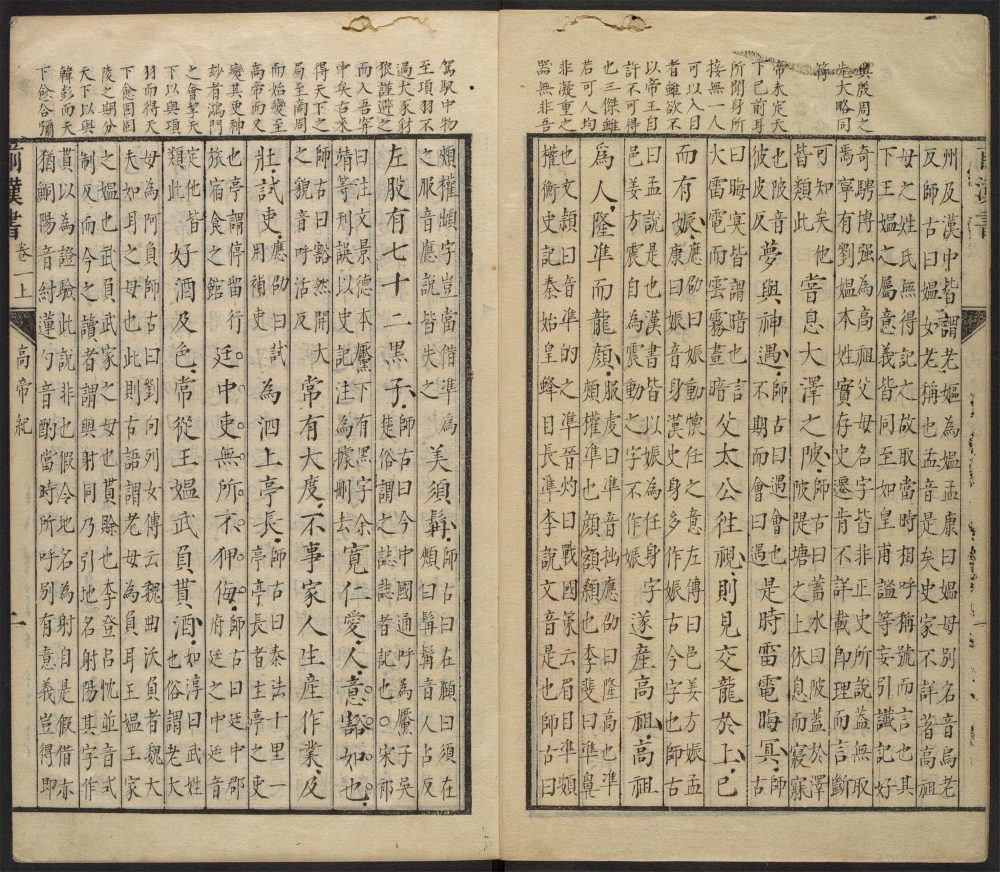 與殷周之
先大略同
符
帝未定天
下已前耳
所聞身所
接無一人
可以入目
者雖欲不
以帝王自
許不可得
也三傑雖
若可人均
非凝重之
器無非吾
州及漢中皆謂老嫗為媼孟康曰媼母別名音烏老
反師古曰媼女老稱也孟音是矣史家不詳著高祖
母之姓氏無得記之故取當時相呼稱號而言也其
下王媼之屬意義皆同至如皇甫謐等妄引讖記好
奇騁博强為高祖父母名字皆非正史所說蓋無取
焉寧有劉媼本姓實存史遷肯不詳載即理而言斷
可知矣他皆類此甞息大澤之陂師古曰蓄水曰陂蓋於澤陂隄塘之上休息而寢寐
也陂音彼皮反夢與神遇師古曰遇會也不期而會曰遇是時雷電晦冥師古
曰晦冥皆謂暗也言大雷電而雲霧晝暗父太公往視則見交龍於上已
而有娠應劭曰娠動懷任之意左傳曰邑姜方娠孟康曰娠音身漢史身多作娠古今字也師古
曰孟說是也漢書皆以娠為任身字邑姜方震自為震動之字不作娠遂產高祖高祖
為人隆準而龍顏服虔曰準音拙應劭曰隆高也準頰權準也顏額顙也李斐曰準鼻
也文頴曰音準的之準晉灼曰戰國策云眉目準頞權衡史記秦始皇蜂目長準李說文音是也師古曰
駕馭中物
至項羽不
過犬豕豺
狼謹避之
而入吾穽
中矣古來
得天下之
局至商周
而始變至
高帝而又
變其更神
玅者鴻門
之會孥天
下以與項
羽而得天
下愈固固
陵之期分
天下以與
韓彭而天
下愈合彌
頰權頞字豈當借準為之服音應說皆失之美須髯師古曰在頤曰須在頰曰髯髯音人占反
左股有七十二黑子師古曰今中國通呼為黶子吳楚俗謂之誌誌者記也宋祁
曰注文景德本黶下有黑字余靖等刊誤以史記注為據刪去寬仁愛人意豁如也
師古曰豁然開大之貌音呼活反常有大度不事家人生產作業及
壯試吏應劭曰試用補吏為泗上亭長師古曰秦法十里一亭亭長者主亭之吏
也亭謂停留行旅宿食之館廷中吏無所不狎侮師古曰廷中郡府廷之中廷音
定他皆類此好酒及色常從王媼武負貰酒如淳曰武姓也俗謂老大
母為阿負師古曰劉向列女傳云魏曲沃負者魏大
夫如耳之母也此則古語謂老母為負耳王媼王家
之媼也武負武家之母也貰賒也李登呂忱並音式
制反而今之讀者謂與射同乃引地名射陽其字作
貰以為證驗此說非也假令地名為射自是假借亦
猶鮦陽音紂蓮勺音酌當時所呼別有意義豈得即
前漢書 卷一上 高帝紀